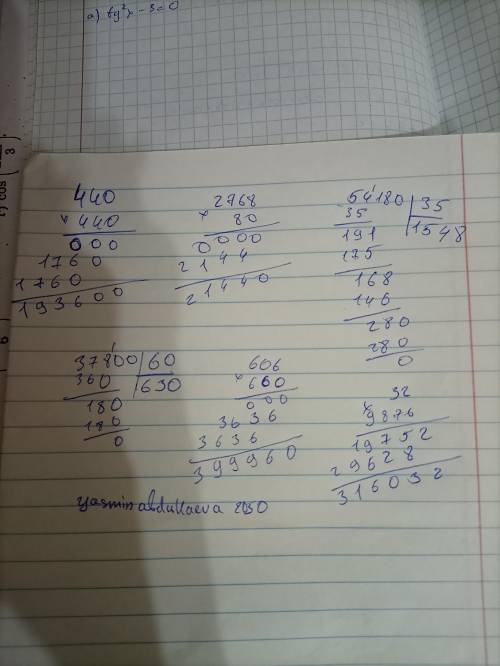 a) tg²x - 3 = 0
440
× 440
000
1760
1760
193600
2768
× 80
0000
2144
21440
54180 | 35
35
1548
191
175
168
146
280
280
0
37800 | 60
360
630
180
180
0
606
× 660
000
3636
3636
399960
32
× 9876
19752
29628
316032
yasmin abdullaeva